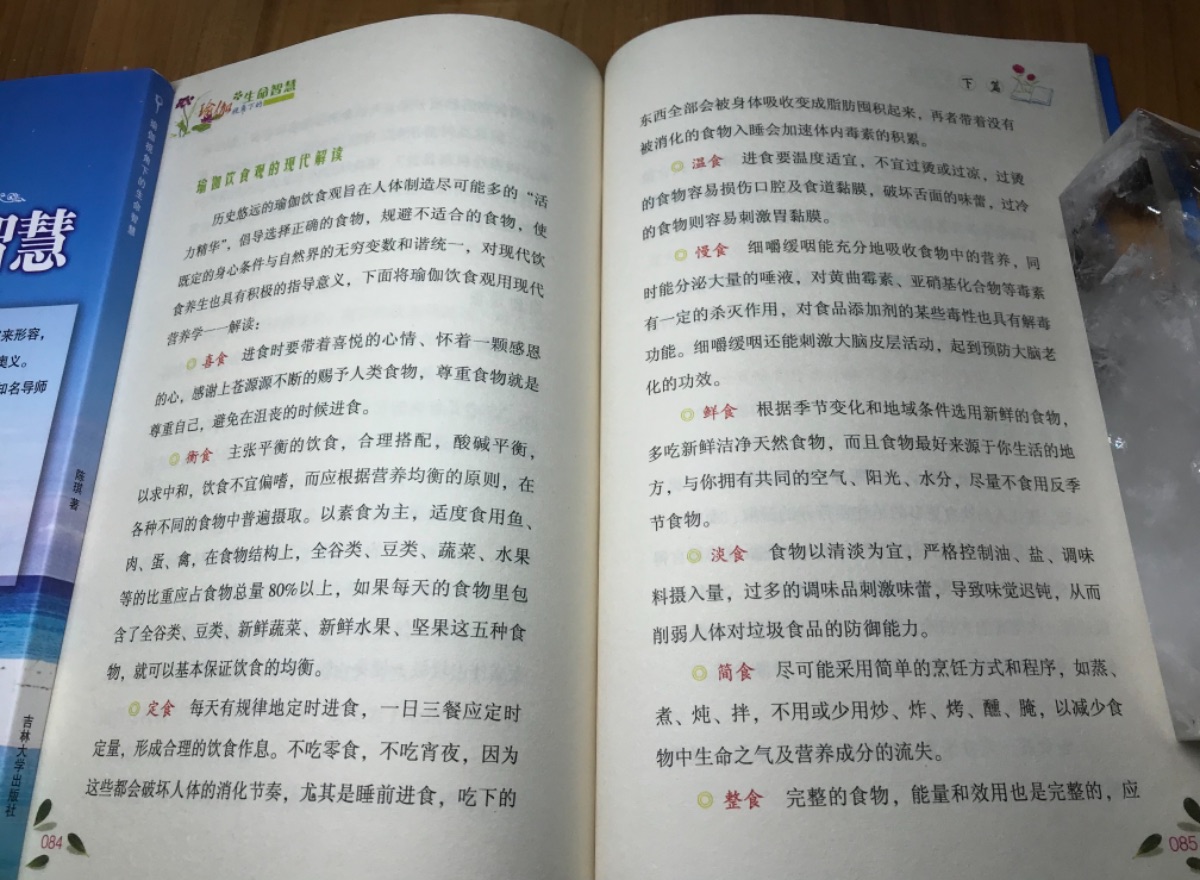 智慧
来形容，
奥义。
知名导师
瑜伽视角下的生命智慧
陈琪 著
吉林大学出版社
瑜伽视角下的生命智慧
瑜伽饮食观的现代解读
历史悠远的瑜伽饮食观旨在人体制造尽可能多的“活
力精华”，倡导选择正确的食物，规避不适合的食物，使
既定的身心条件与自然界的无穷变数和谐统一，对现代饮
食养生也具有积极的指导意义，下面将瑜伽饮食观用现代
营养学一一解读：
喜食 进食时要带着喜悦的心情、怀着一颗感恩
的心，感谢上苍源源不断的赐予人类食物，尊重食物就是
尊重自己，避免在沮丧的时候进食。
衡食 主张平衡的饮食，合理搭配，酸碱平衡，
以求中和，饮食不宜偏嗜，而应根据营养均衡的原则，在
各种不同的食物中普遍摄取。以素食为主，适度食用鱼、
肉、蛋、禽，在食物结构上，全谷类、豆类、蔬菜、水果
等的比重应占食物总量80%以上，如果每天的食物里包
含了全谷类、豆类、新鲜蔬菜、新鲜水果、坚果这五种食
物，就可以基本保证饮食的均衡。
定食 每天有规律地定时进食，一日三餐应定时
定量，形成合理的饮食作息。不吃零食，不吃宵夜，因为
这些都会破坏人体的消化节奏，尤其是睡前进食，吃下的
084
下 篇
东西全部会被身体吸收变成脂肪囤积起来，再者带着没有
被消化的食物入睡会加速体内毒素的积累。
温食 进食要温度适宜，不宜过烫或过凉，过烫
的食物容易损伤口腔及食道黏膜，破坏舌面的味蕾，过冷
的食物则容易刺激胃黏膜。
慢食 细嚼缓咽能充分地吸收食物中的营养，同
时能分泌大量的唾液，对黄曲霉素、亚硝基化合物等毒素
有一定的杀灭作用，对食品添加剂的某些毒性也具有解毒
功能。细嚼缓咽还能刺激大脑皮层活动，起到预防大脑老
化的功效。
鲜食 根据季节变化和地域条件选用新鲜的食物，
多吃新鲜洁净天然食物，而且食物最好来源于你生活的地
方，与你拥有共同的空气、阳光、水分，尽量不食用反季
节食物。
淡食 食物以清淡为宜，严格控制油、盐、调味
料摄入量，过多的调味品刺激味蕾，导致味觉迟钝，从而
削弱人体对垃圾食品的防御能力。
简食 尽可能采用简单的烹饪方式和程序，如蒸、
煮、炖、拌，不用或少用炒、炸、烤、醺、腌，以减少食
物中生命之气及营养成分的流失。
整食 完整的食物，能量和效用也是完整的，应
085